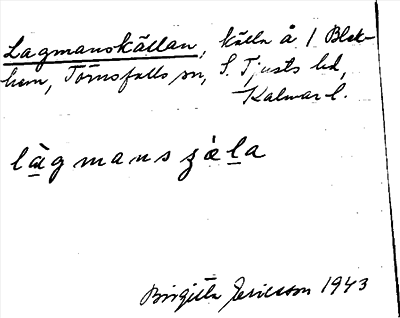 Lagmanskällan, källa å 1 Blek-
hem, Törnsfalls sn, S. Tjusts hd,
Kalmar l.
làgmansʒäla
Birgitta Ericsson 1943